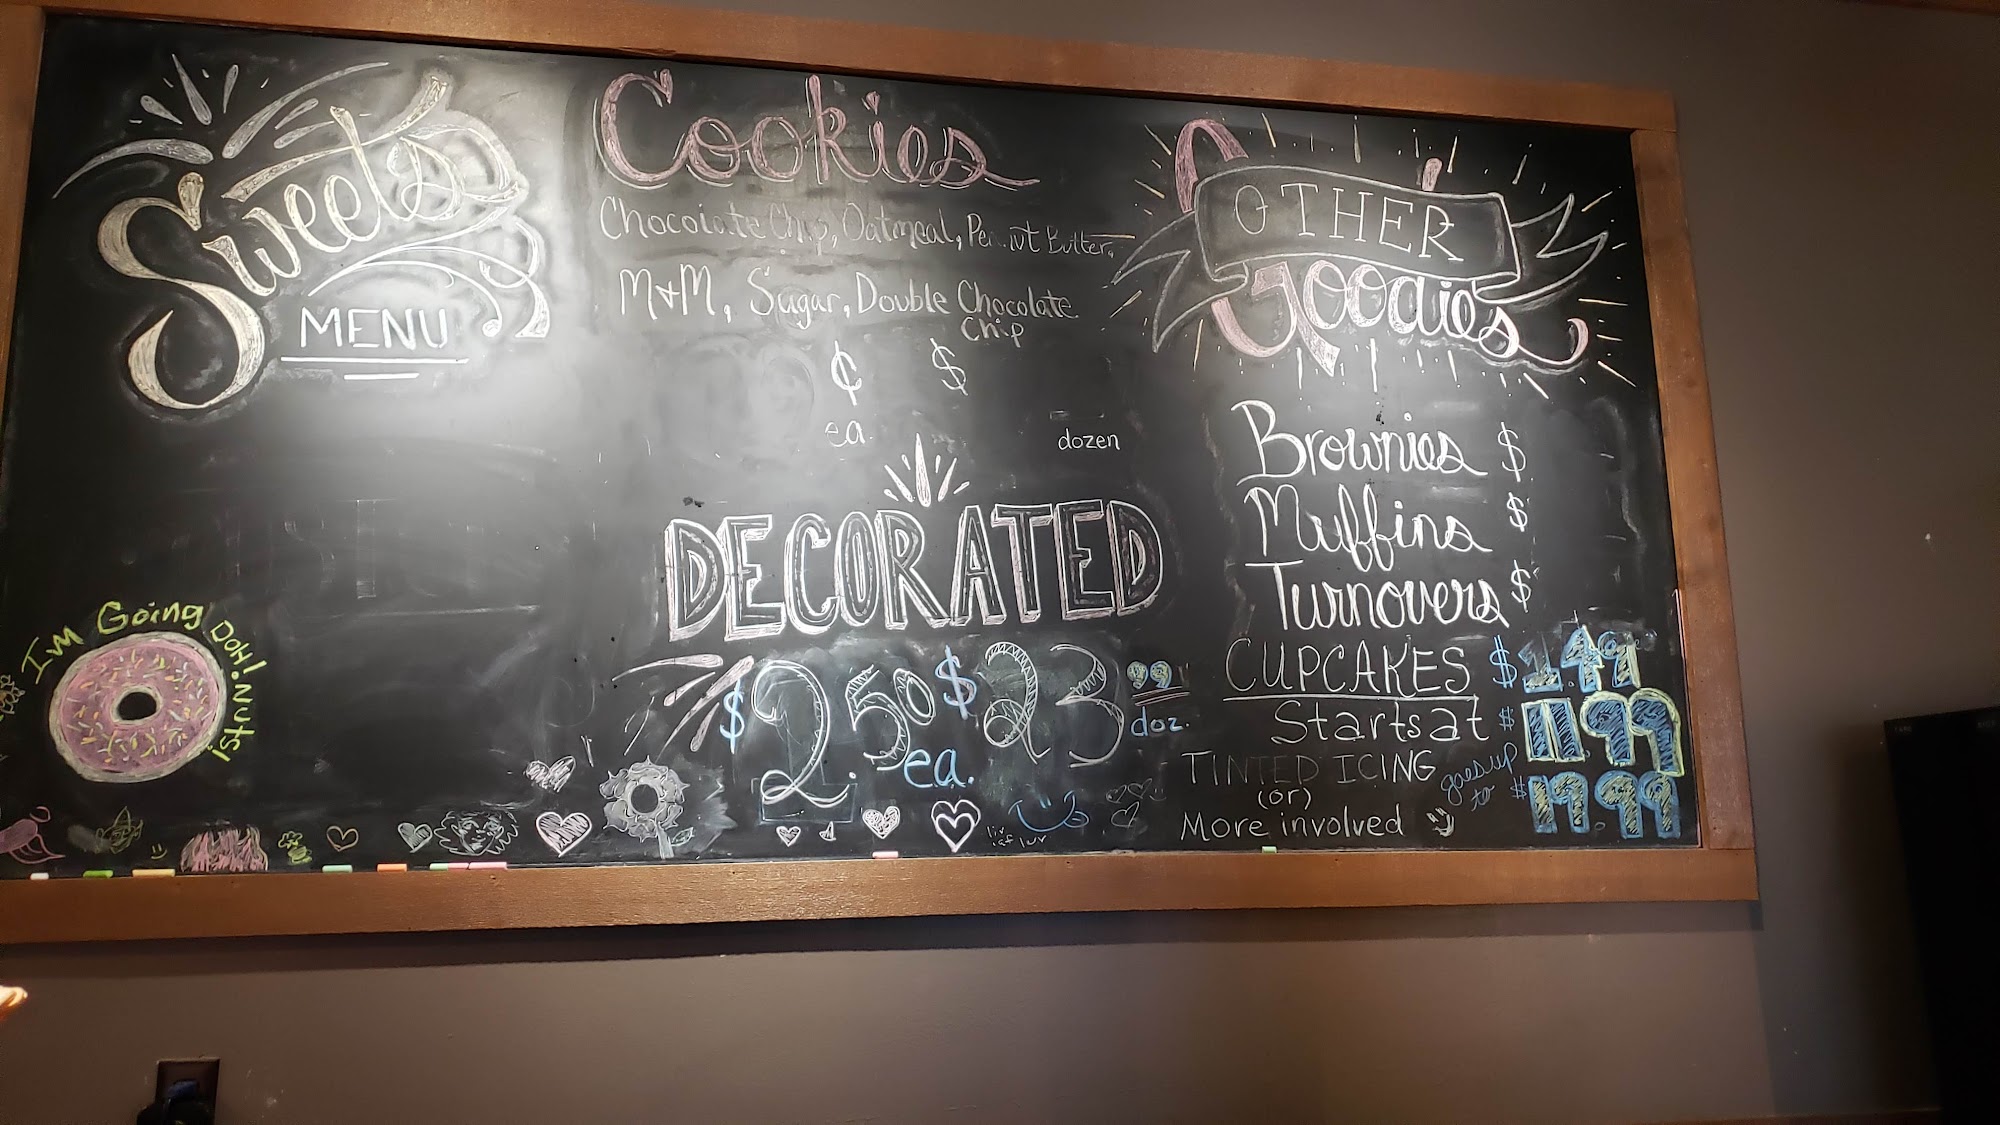 Sweets
MENU
I'm Going DOH! Nuts!
Cookies
Chocolate Chip, Oatmeal, Peanut Butter,
M+M, Sugar, Double Chocolate
Chip
¢ $
ea. dozen
DECORATED
$2.50 ea. $23.99 doz.
OTHER
Goodies
Brownies $
Muffins $
Turnovers $
CUPCAKES $1.49
Starts at $11.99
TINTED ICING goes up
(or) to $19.99
More involved